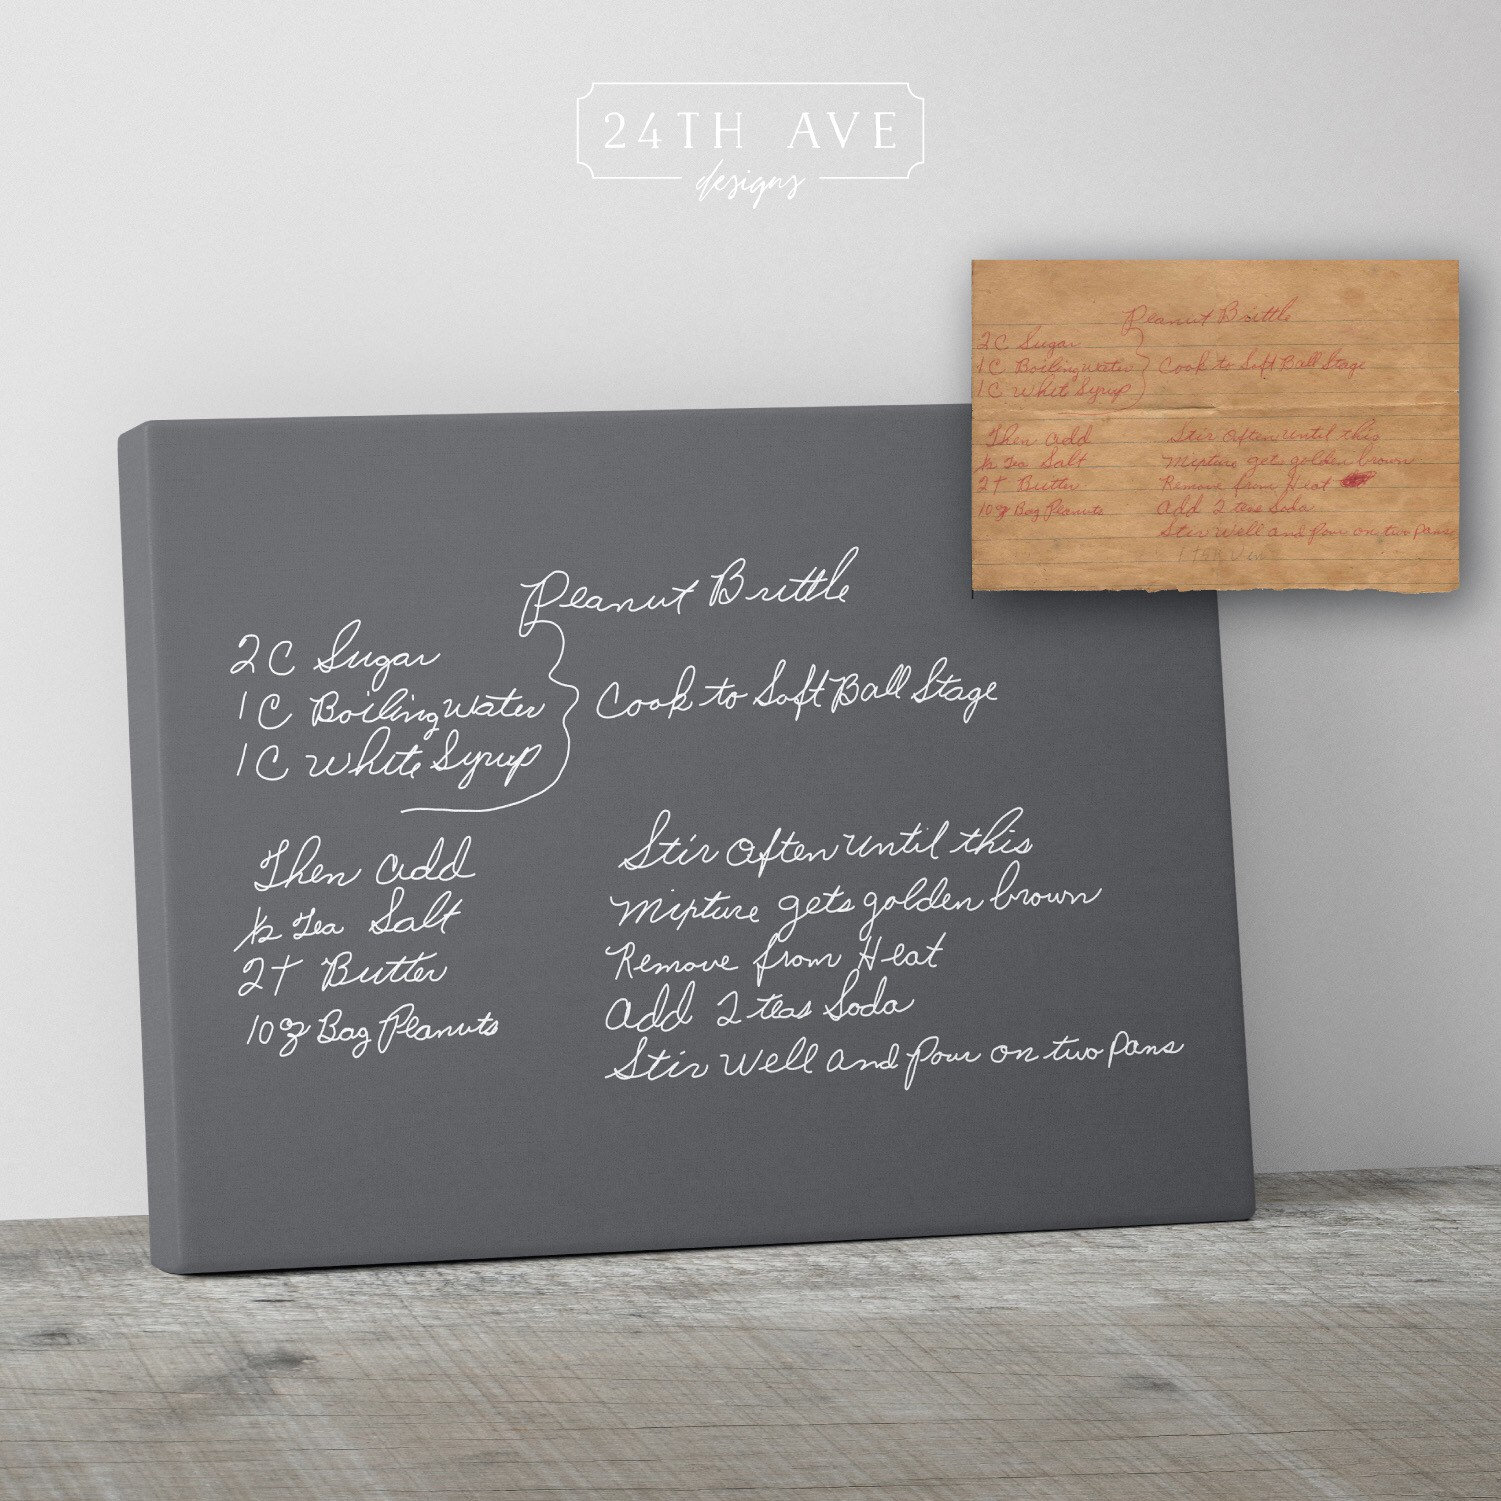 24TH AVE
designs
Peanut Brittle
2 C Sugar
1 C Boiling water
1 C White Syrup
Cook to Soft Ball Stage
Then add
½ Tea Salt
2 T Butter
10 oz Bag Peanuts
Stir Often until this
Mixture gets golden brown
Remove from Heat
add 2 teas Soda
Stir Well and Pour on two Pans
Peanut Brittle
2 C Sugar
1 C Boiling water
1 C White Syrup
Cook to Soft Ball Stage
Then add
½ Tea Salt
2 T Butter
10 oz Bag Peanuts
Stir Often until this
Mixture gets golden brown
Remove from Heat
add 2 teas Soda
Stir Well and Pour on two Pans